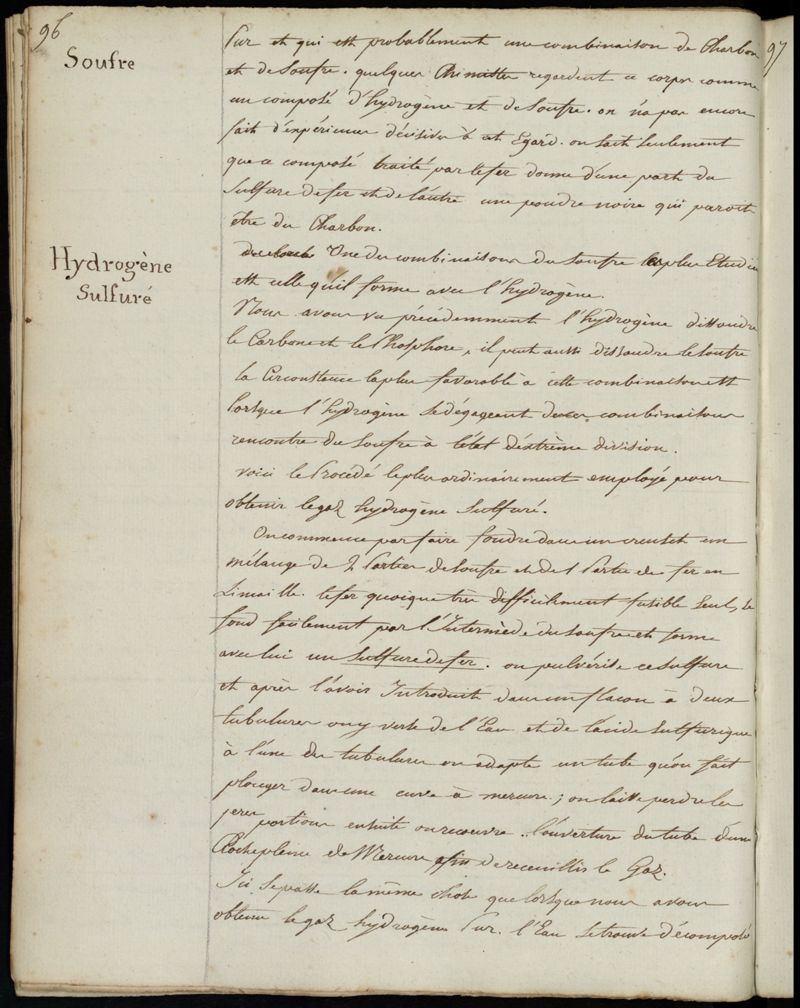 96
97
Soufre
Pur et qui est probablement une combinaison de Charbon
et de Soufre. quelques Chimistes regardent ce corps comme
un composé d'hydrogène et de Soufre. on n'a pas encore
fait d'expérience décisive à cet Egard. on sait seulement
que ce composé traité par le fer donne d'une part du
Sulfure de fer et de l'autre une poudre noire qui paroit
être du Charbon.
Hydrogène
Sulfuré
Une des combinaisons du Soufre les plus Etudiée
est celle qu'il forme avec l'hydrogène.
Nous avons vu précédemment l'hydrogène dissoudre
le Carbone et le Phosphore, il peut aussi dissoudre le soufre
la Circonstance la plus favorable à cette combinaison est
lorsque l'hydrogène se dégageant de ses combinaisons
rencontre du Soufre à l'état d'extrême division.
voici le Procédé le plus ordinairement employé pour
obtenir le gaz hydrogène Sulfuré.
On commence par faire fondre dans un creuset un
mélange de 2 Parties de Soufre et de 1 Partie de fer en
Limaille. le fer quoique très difficilement fusible seul, se
fond facilement par l'Intermède du Soufre et forme
avec lui un Sulfure de fer. on pulvérise ce sulfure
et après l'avoir Introduit dans un flacon à deux
tubulures on y verse de l'Eau et de l'acide Sulfurique
à l'une des tubulures on adapte un tube qu'on fait
plonger dans une cuve à mercure; on laisse perdre les
1eres portions ensuite on recouvre l'ouverture du tube d'une
Cloche pleine de Mercure afin de receuillir le Gaz.
Ici se passe la même chose que lorsque nous avons
obtenu le gaz hydrogène Pur. l'Eau se trouve décomposé